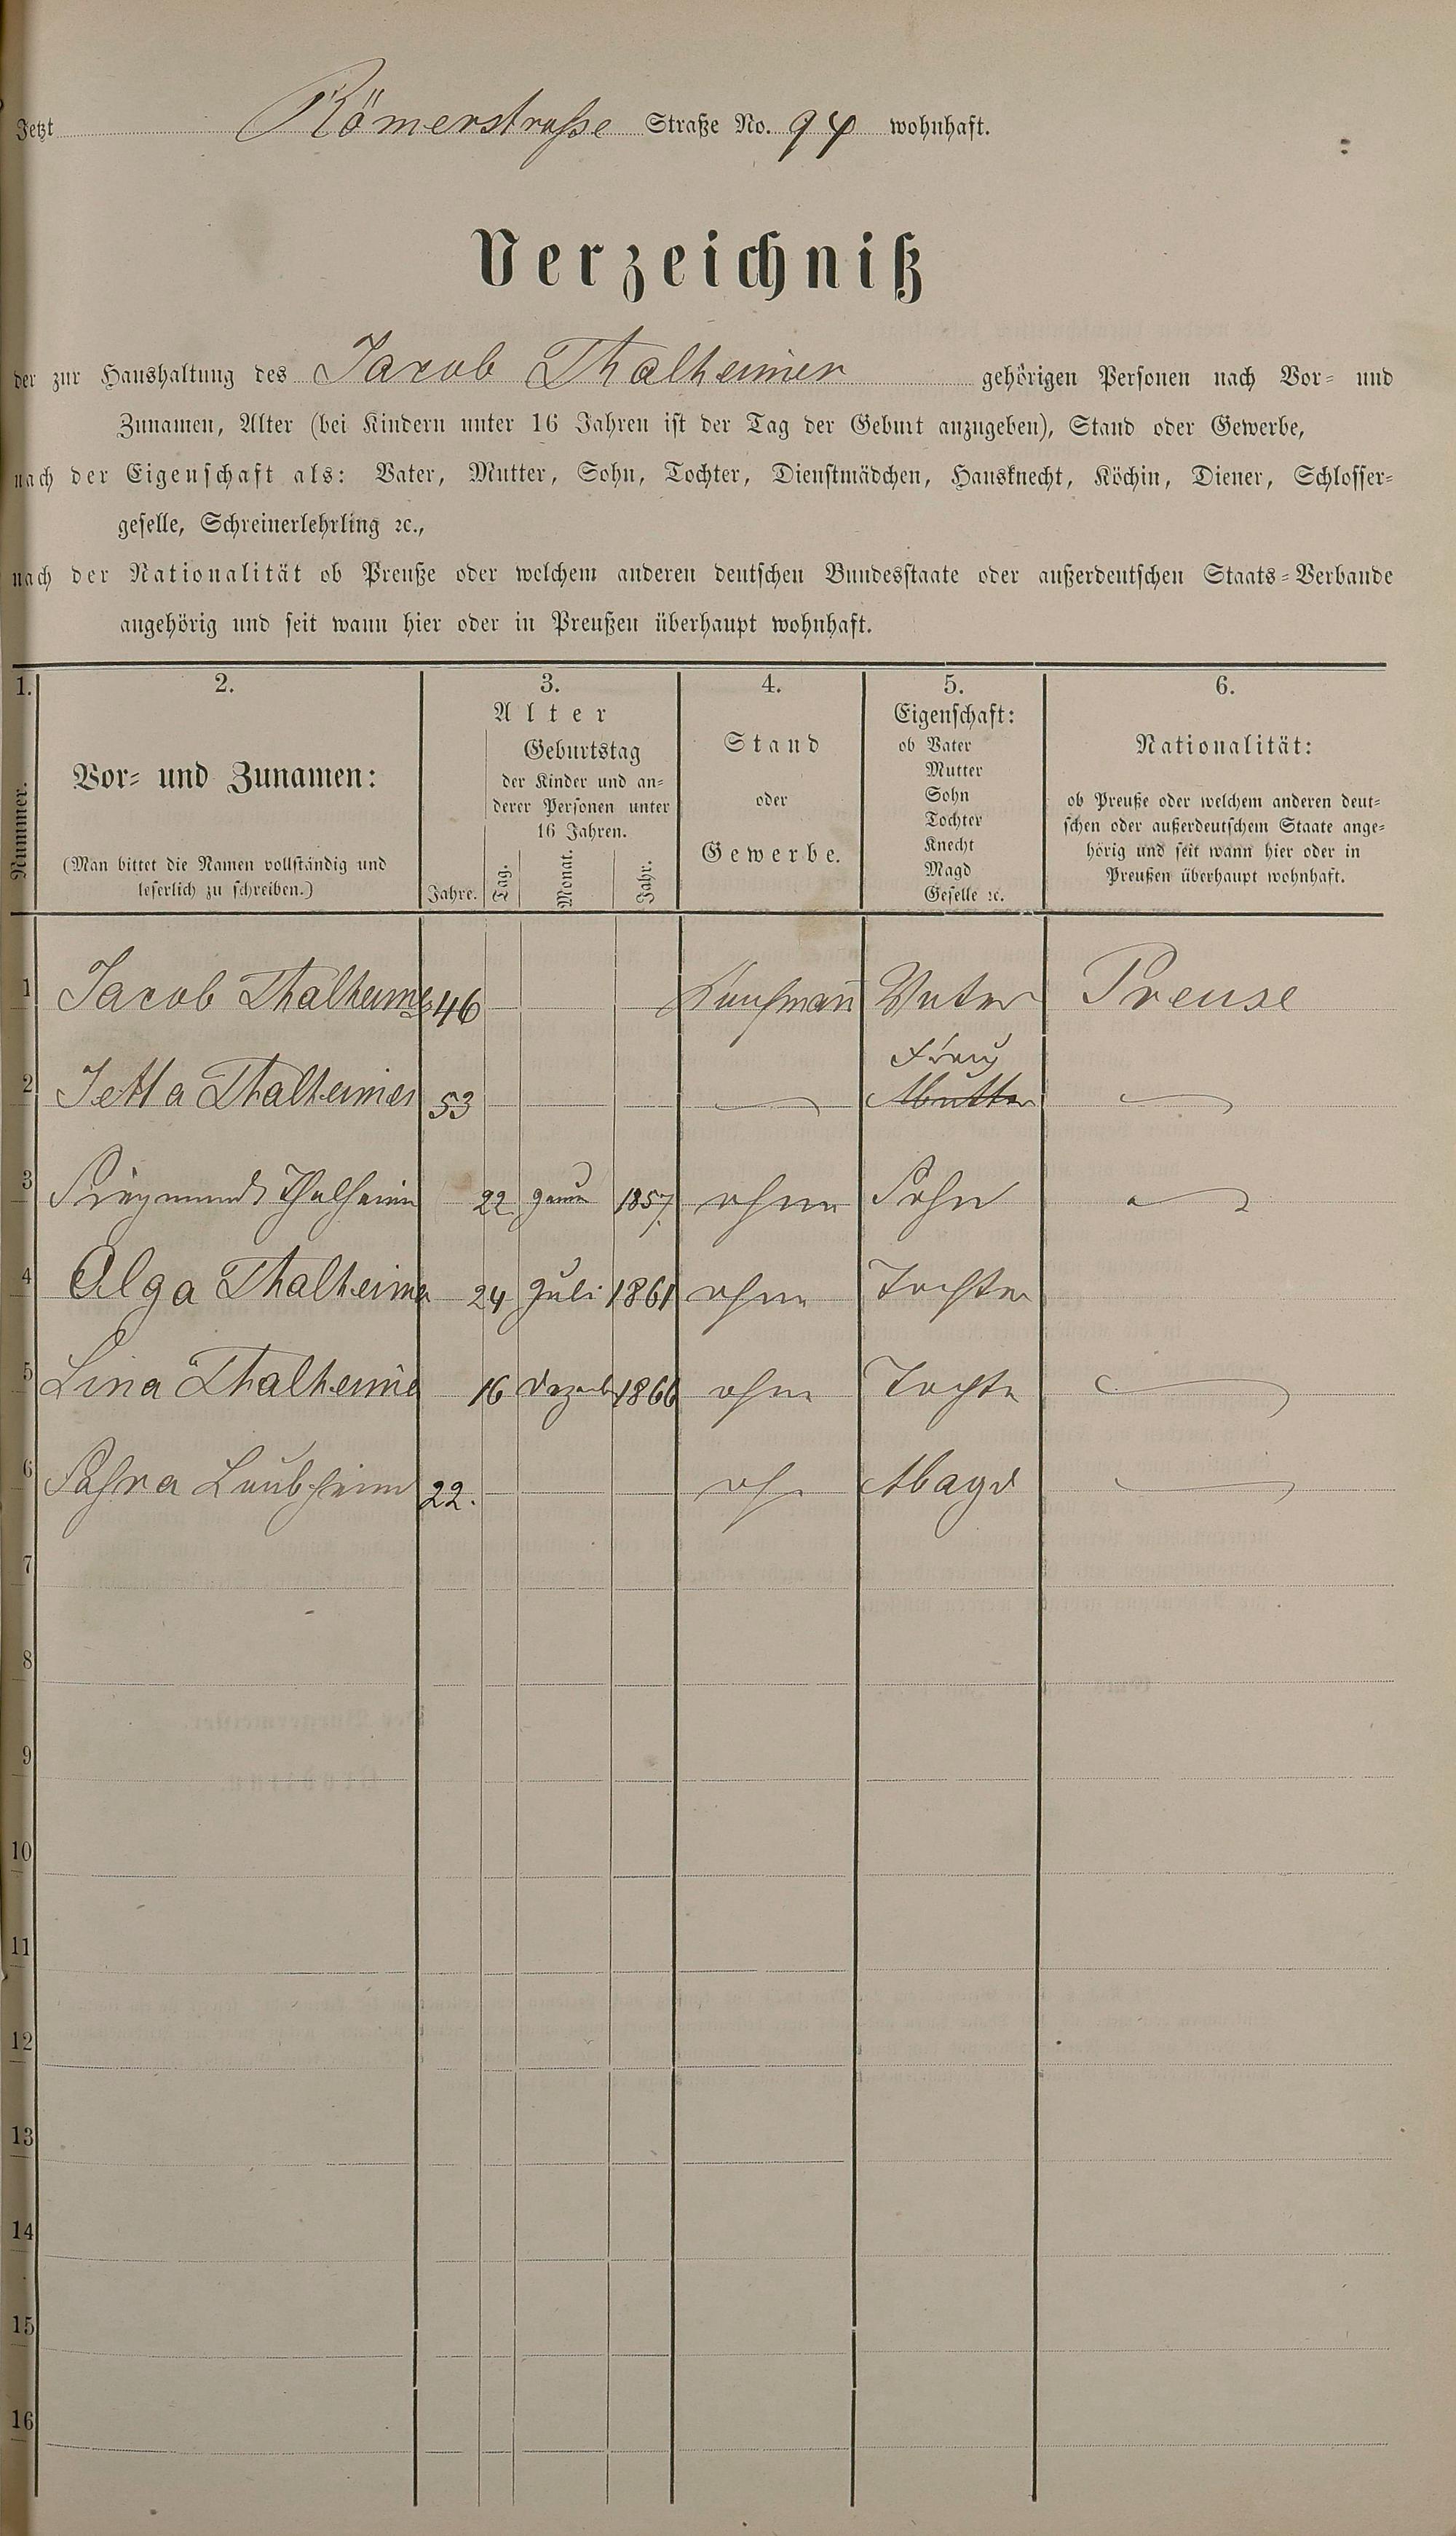 Jetzt Römerstraße Straße No. 94 wohnhaft.
Verzeichniß
der zur Haushaltung des Jacob Thalheimer gehörigen Personen nach Vor- und
Zunamen, Alter (bei Kindern unter 16 Jahren ist der Tag der Geburt anzugeben), Stand oder Gewerbe,
nach der Eigenschaft als: Vater, Mutter, Sohn, Tochter, Dienstmädchen, Hausknecht, Köchin, Diener, Schlosser-
geselle, Schreinerlehrling ꝛc.,
nach der Nationalität ob Preuße oder welchem anderen deutschen Bundesstaate oder außerdeutschen Staats-Verbande
angehörig und seit wann hier oder in Preußen überhaupt wohnhaft.
1. 2. 3. 4. 5. 6.
Nummer.
Vor- und Zunamen:
(Man bittet die Namen vollständig und
leserlich zu schreiben.)
Alter
Jahre.
Geburtstag
der Kinder und an-
derer Personen unter
16 Jahren.
Tag. Monat. Jahr.
Stand
oder
Gewerbe.
Eigenschaft:
ob Vater
Mutter
Sohn
Tochter
Knecht
Magd
Geselle ꝛc.
Nationalität:
ob Preuße oder welchem anderen deut-
schen oder außerdeutschem Staate ange-
hörig und seit wann hier oder in
Preußen überhaupt wohnhaft.
1 Jacob Thalheimer 46 Kaufmann Vater Preuse
Frau
2 Jetta Thalheimer 53 Mutter
3 Siegmund Thalheim 22 Januar 1857 ohne Sohn
4 Olga Thalheimer 24 Juli 1861 ohne Tochter
5 Lina Thalheime 16 Dezemb 1866 ohne Tochter
6 Sahra Laubheim 22. oh Magd
7
8
9
10
11
12
13
14
15
16